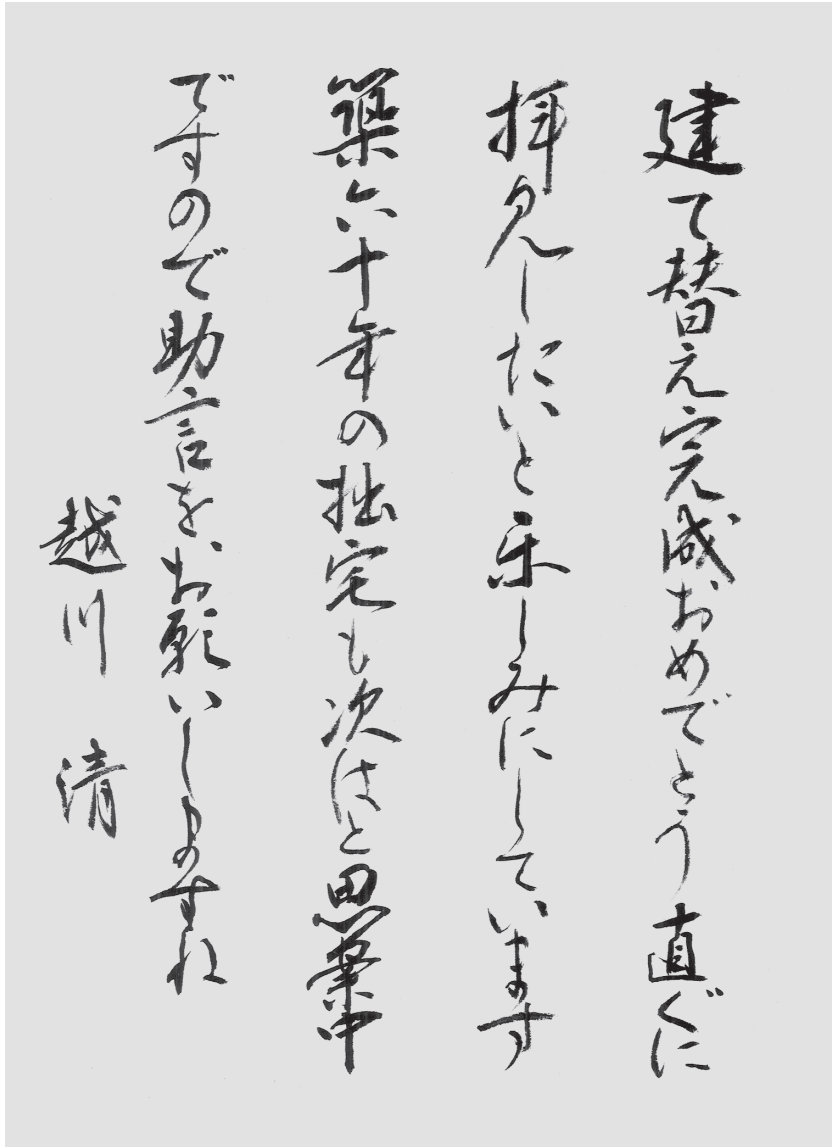 建て替え完成おめでとう直ぐに
拝見したいと楽しみにしています
築六十年の拙宅も次はと思案中
ですので助言をお願いしますね
越川 清